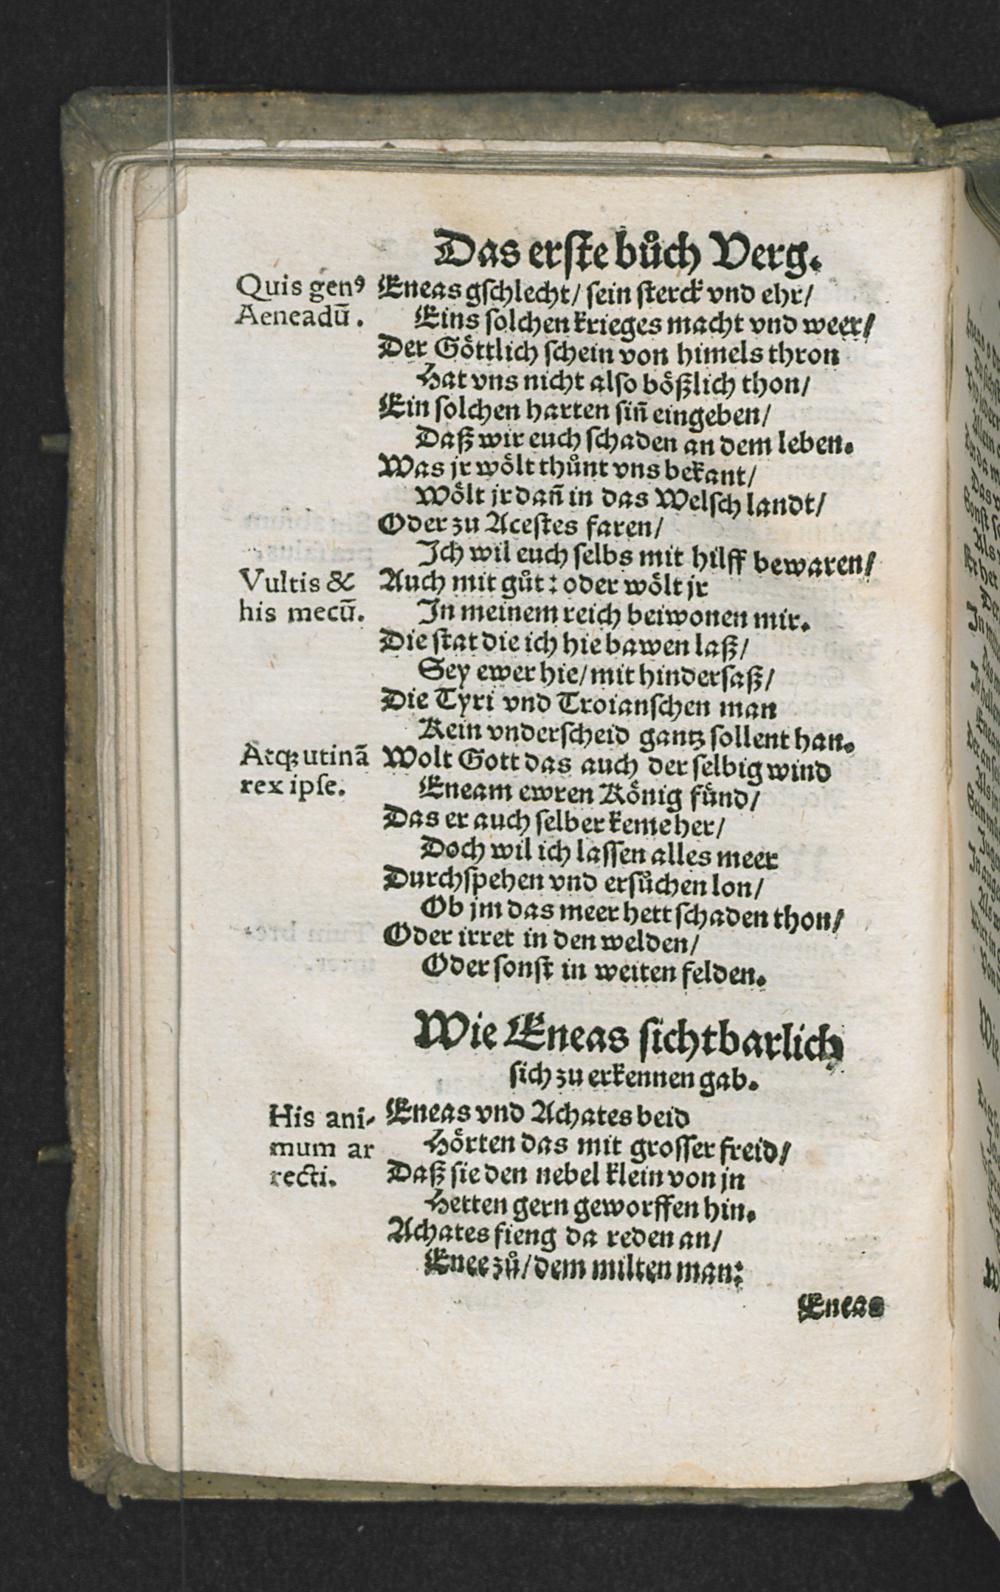 Das erste bůch Verg.
Quis genꝰ
Aeneadū.
Eneas gschlecht/ sein sterck vnd ehr/
Eins solchen krieges macht vnd weer/
Der Göttlich schein von himels thron
Hat vns nicht also bößlich thon/
Ein solchen harten siñ eingeben/
Daß wir euch schaden an dem leben.
Was jr wölt thůnt vns bekant/
Wölt jr dañ in das Welsch landt/
Oder zu Acestes faren/
Jch wil euch selbs mit hilff bewaren/
Vultis &
his mecū.
Auch mit gůt: oder wölt jr
Jn meinem reich beiwonen mir.
Die stat die ich hie bawen laß/
Sey ewer hie/ mit hindersaß/
Die Tyri vnd Troianschen man
Kein vnderscheid gantz sollent han.
Atqꝫ utinā
rex ipse.
Wolt Gott das auch der selbig wind
Eneam ewren König fünd/
Das er auch selber keme her/
Doch wil ich lassen alles meer
Durchspehen vnd ersůchen lon/
Ob jm das meer hett schaden thon/
Oder irret in den welden/
Oder sonst in weiten felden.
Wie Eneas sichtbarlich
sich zu erkennen gab.
His ani-
mum ar
recti.
Eneas vnd Achates beid
Hörten das mit grosser freid/
Daß sie den nebel klein von jn
Hetten gern geworffen hin.
Achates fieng da reden an/
Enee zů/ dem milten man:
Eneas